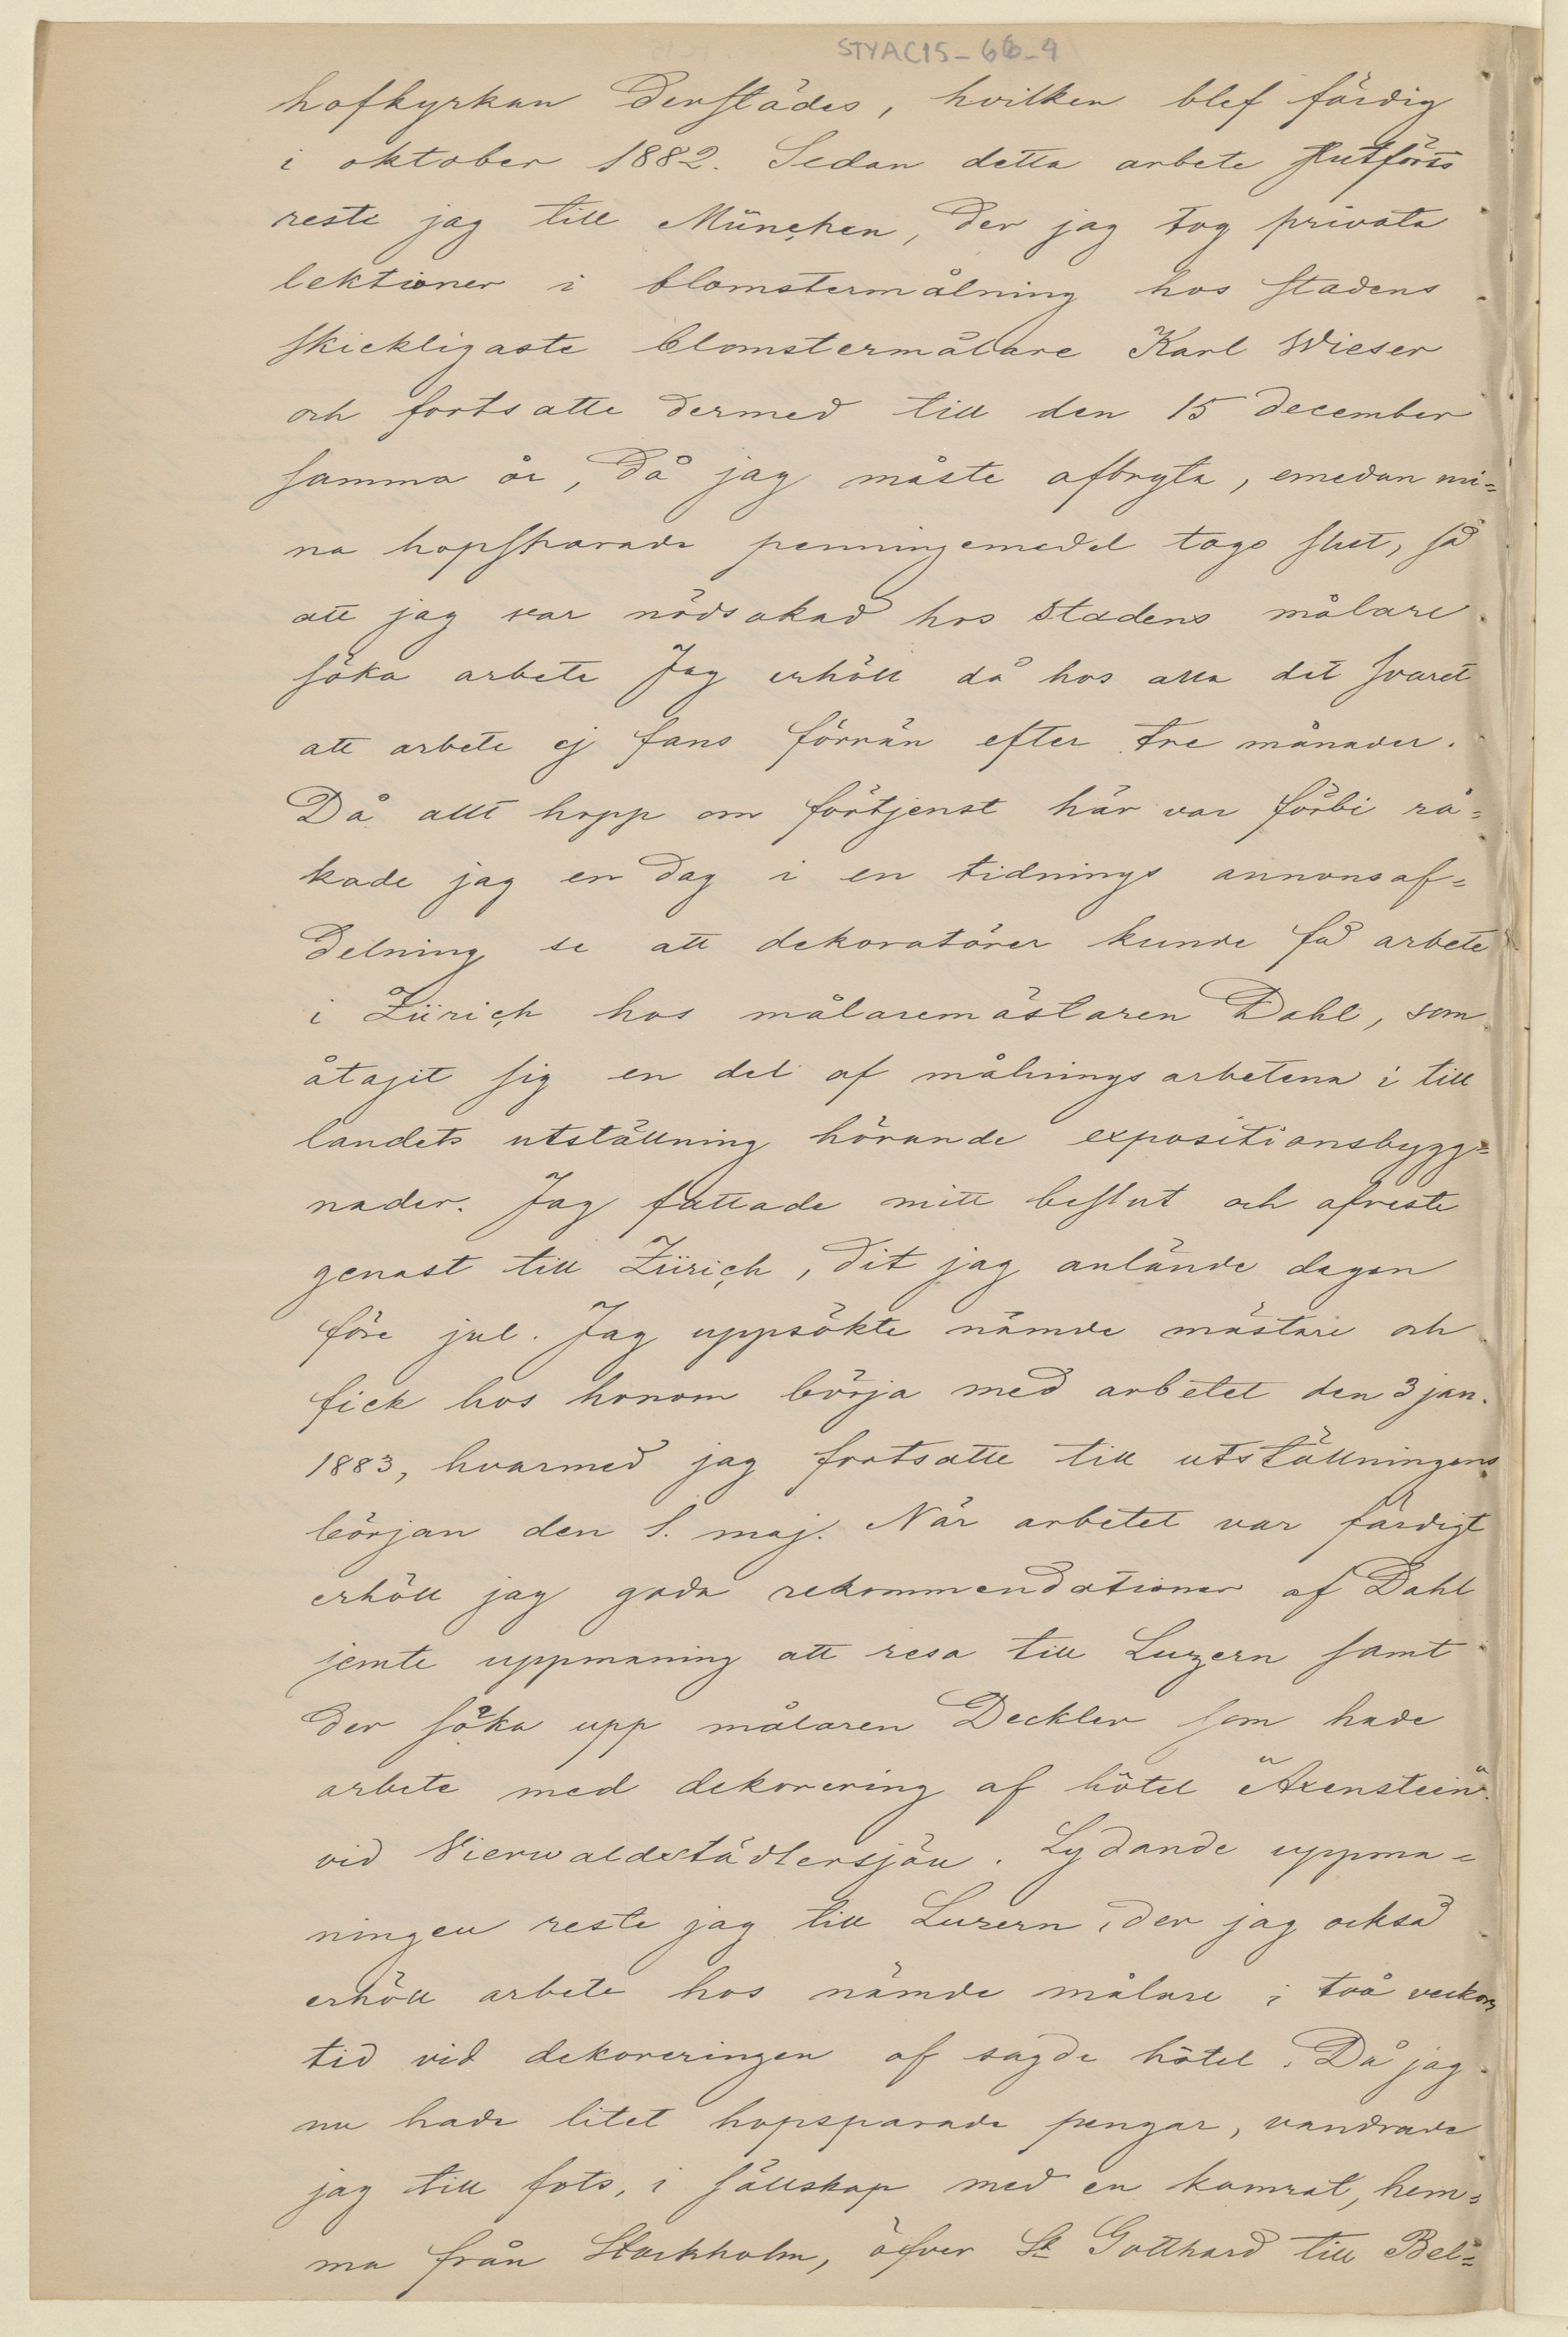 STYAC15-66-4
hofkyrkan derstädes, hvilken blef färdig
i oktober 1882. Sedan detta arbete slutförts
reste jag till München, der jag tog privata
lektioner i blomstermålning hos stadens
skickligaste blomstermålare Karl Wieser
och fortsatte dermed till den 15 december
samma år, då jag måste afbryta, emedan mi=
na hopsparade penningemedel togo slut, så
att jag var nödsakad hos stadens målare
söka arbete Jag erhöll då hos alla det svaret
att arbete ej fans förrän efter tre månader.
Då allt hopp om förtjenst här var förbi rå=
kade jag en dag i en tidnings annonsaf=
delning se att dekoratörer kunde få arbete
i Zürich hos målaremästaren Dahl, som
åtagit sig en del af målningsarbetena i till
landets utställning hörande expositionsbygg=
nader. Jag fattade mitt beslut och afreste
genast till Zürich, dit jag anlände dagen
före jul. Jag uppsökte nämde mästare och
fick hos honom börja med arbetet den 3 jan.
1883, hvarmed jag fortsatte till utställningens
början den 1. maj. När arbetet var färdigt
erhöll jag goda rekommendationer af Dahl
jemte uppmaning att resa till Luzern samt
der söka upp målaren Deckler som hade
arbete med dekorering af hôtel "Axenstein"
vid Vierwaldstädtersjön. Lydande uppma=
ningen reste jag till Luzern, der jag också
erhöll arbete hos nämde målare i två veckors
tid vid dekoreringen af sagde hôtel. Då jag
nu hade litet hopsparade pengar, vandrade
jag till fots, i sällskap med en kamrat, hem=
ma från Stockholm, öfver St Gotthard till Bel=